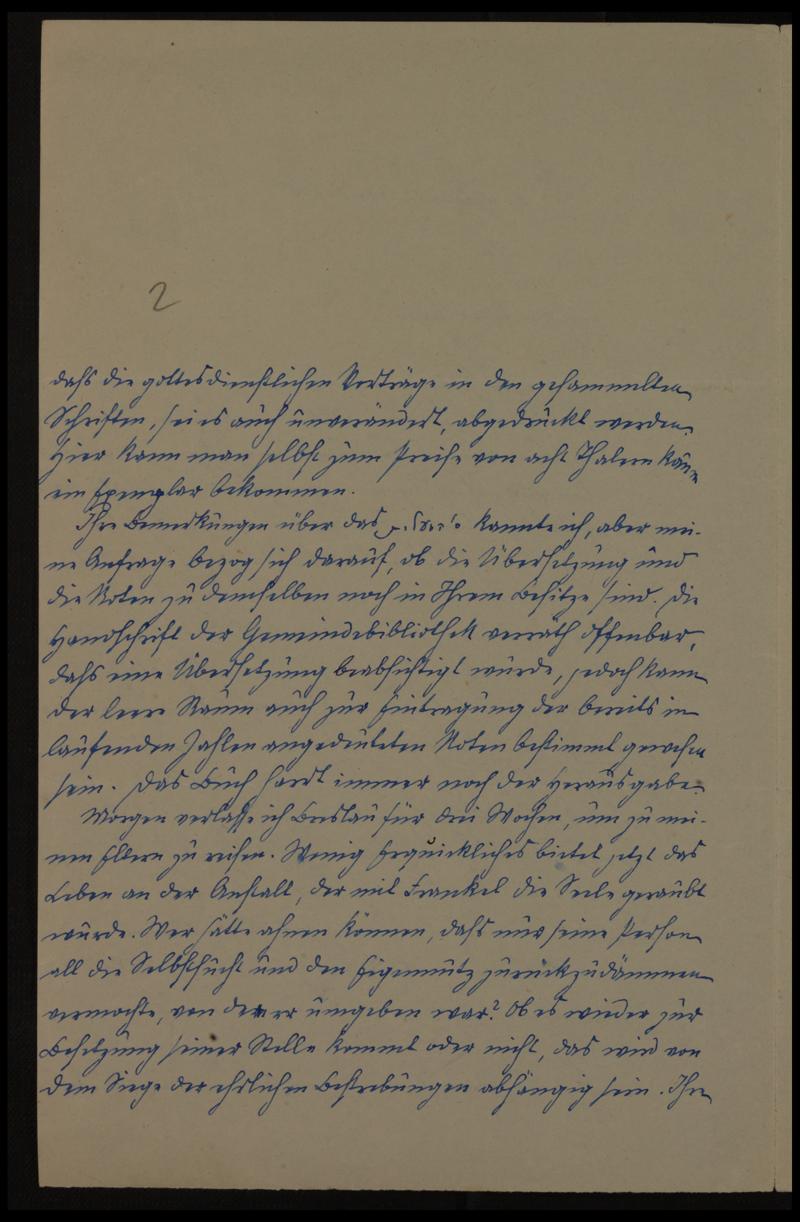 2
daſs die gottesdienstlichen Vorträge in den gesammelten
Schriften, sei es auch unverändert, abgedruckt werden.
Hier kann man selbst zum Preise von acht Thalern kaum
ein Exemplar bekommen.
Ihre Bemerkungen über das kannte ich, aber mei-
ne Anfrage bezog sich darauf, ob die Übersetzung und
die Noten zu demselben noch in Ihrem Besitze sind. Die
Handschrift der Gemeindebibliothek verräth offenbar,
daſs eine Übersetzung beabsichtigt wurde, jedoch kann
der leere Raum auch zur Eintragung der bereits in
laufenden Zahlen angedeuteten Noten bestimmt gewesen
sein. Das Buch harrt immer noch der Herausgabe.
Morgen verlasse ich Breslau für drei Wochen, um zu mei-
nen Eltern zu reisen. Wenig Erquickliches bietet jetzt das
Leben an der Anstalt, der mit Frankel die Seele geraubt
wurde. Wer hätte ahnen können, daſs nur seine Person
all die Selbstsucht und den Eigennutz zurückzudämmen
vermochte, von denen er umgeben war? Ob es wieder zur
Besetzung seiner Stelle kommt oder nicht, das wird von
dem Siege der ehrlichen Bestrebungen abhängig sein. Ihre